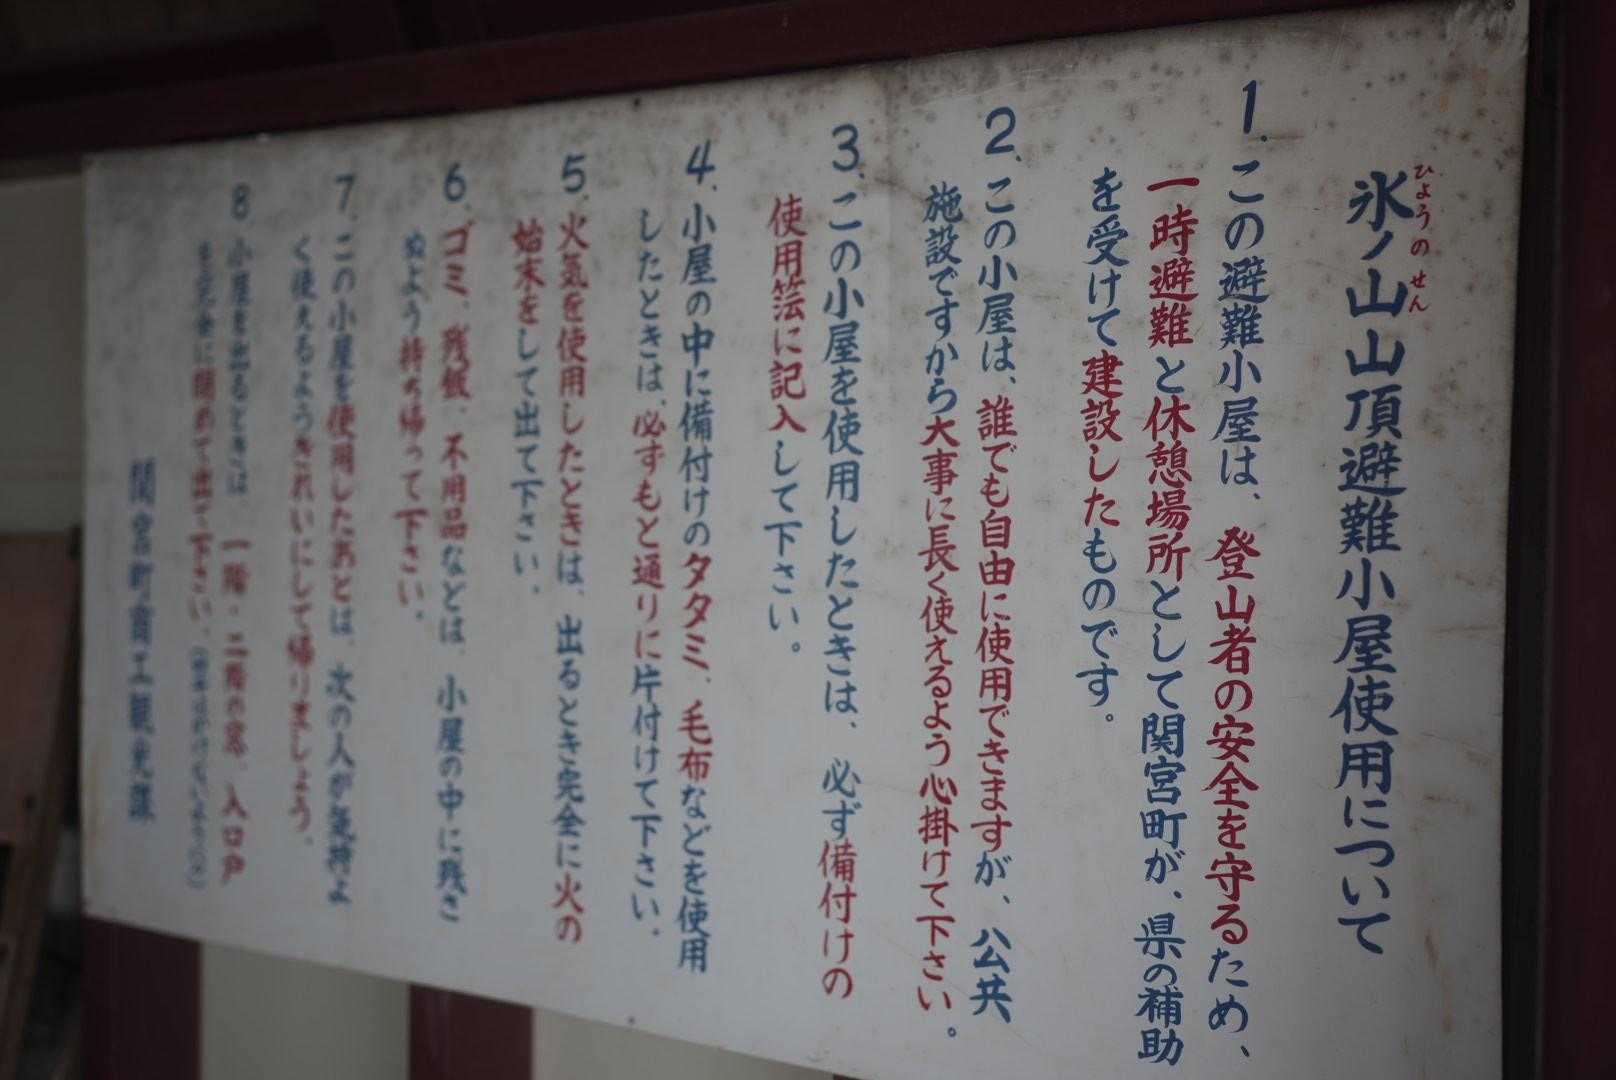 氷ノ山山頂避難小屋使用について
ひょうのせん
1. この避難小屋は、登山者の安全を守るため、
一時避難と休憩場所として関宮町が、県の補助
を受けて建設したものです。
2. この小屋は、誰でも自由に使用できますが、公共
施設ですから大事に長く使えるよう心掛けて下さい。
3. この小屋を使用したときは、必ず備付けの
使用簿に記入して下さい。
4. 小屋の中に備付けのタタミ、毛布などを使用
したときは、必ずもと通りに片付けて下さい。
5. 火気を使用したときは、出るとき完全に火の
始末をして出て下さい。
6. ゴミ、残飯、不用品などは、小屋の中に残さ
ぬよう持ち帰って下さい。
7. この小屋を使用したあとは、次の人が気持よ
く使えるようきれいにして帰りましょう。
8. 小屋を出るときは、一階・二階の窓、入口戸
を完全に閉めて出て下さい。
関宮町商工観光課